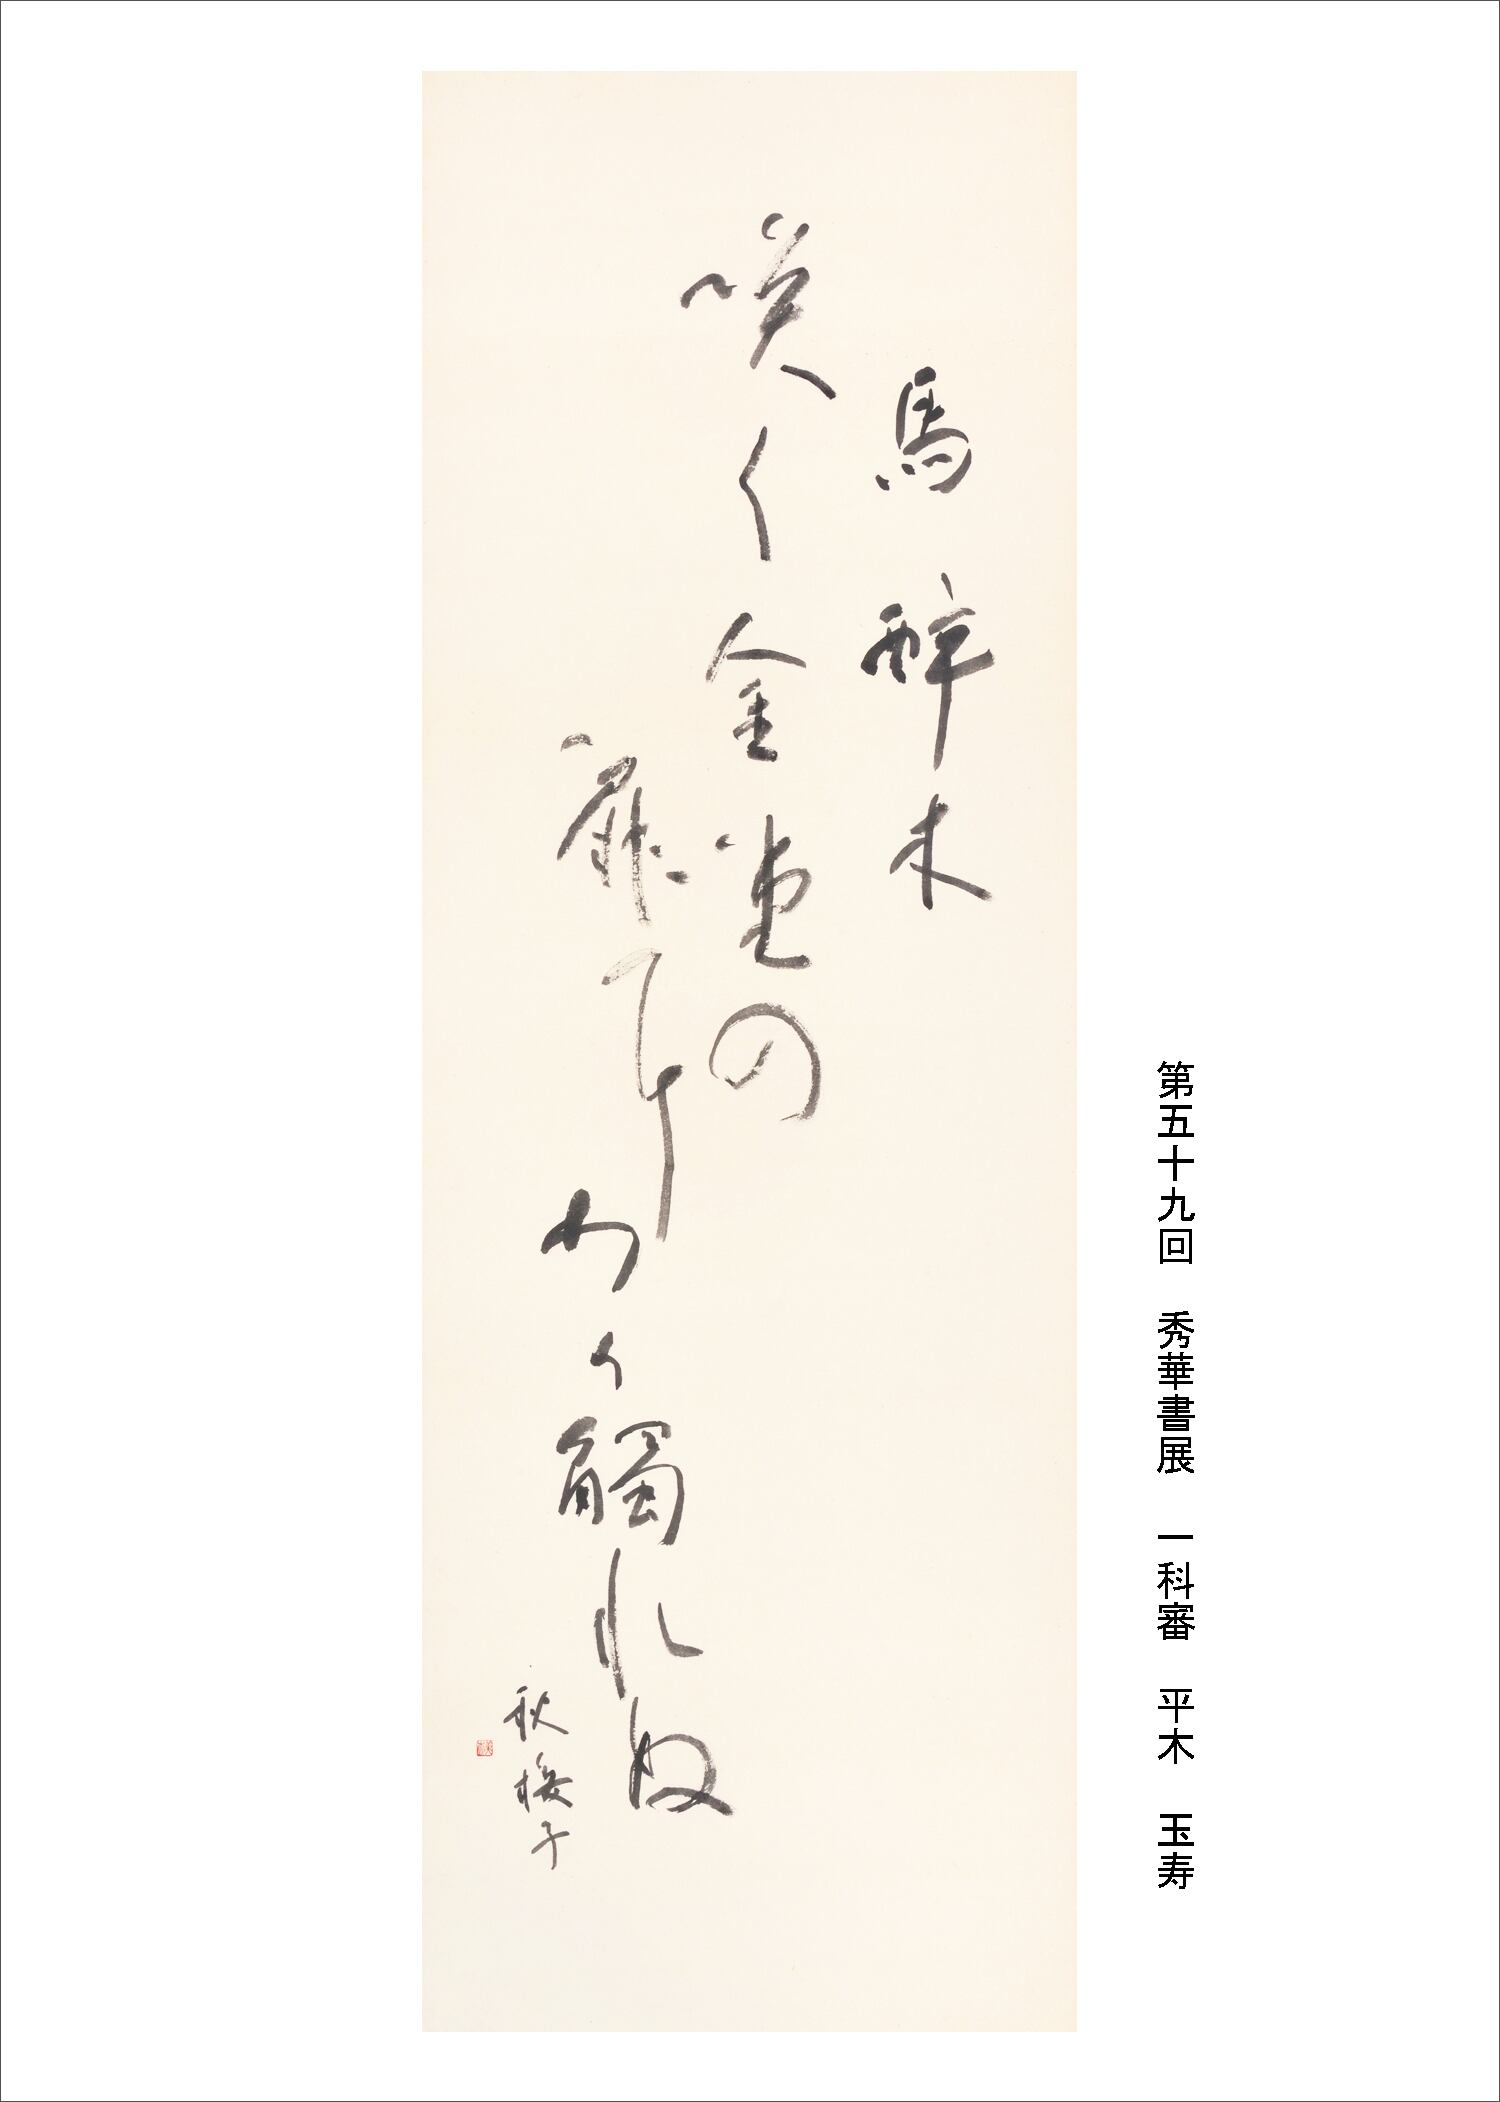 第五十九回　秀華書展　一科審　平木　玉寿
馬醉木
咲く金堂の
扉にわか觸れぬ
秋桜子